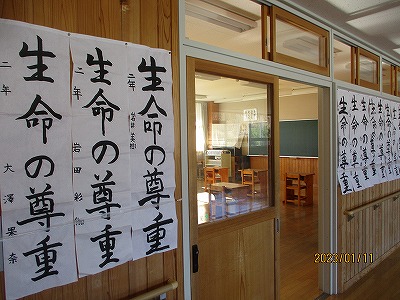 生命の尊重
二年
生命の尊重
二年 岩田彩
生命の尊重
二年 大澤里奈
生命の尊重
生命の尊重
生命の尊重
生命の尊重
生命の尊重
生命の尊重
2023/01/11